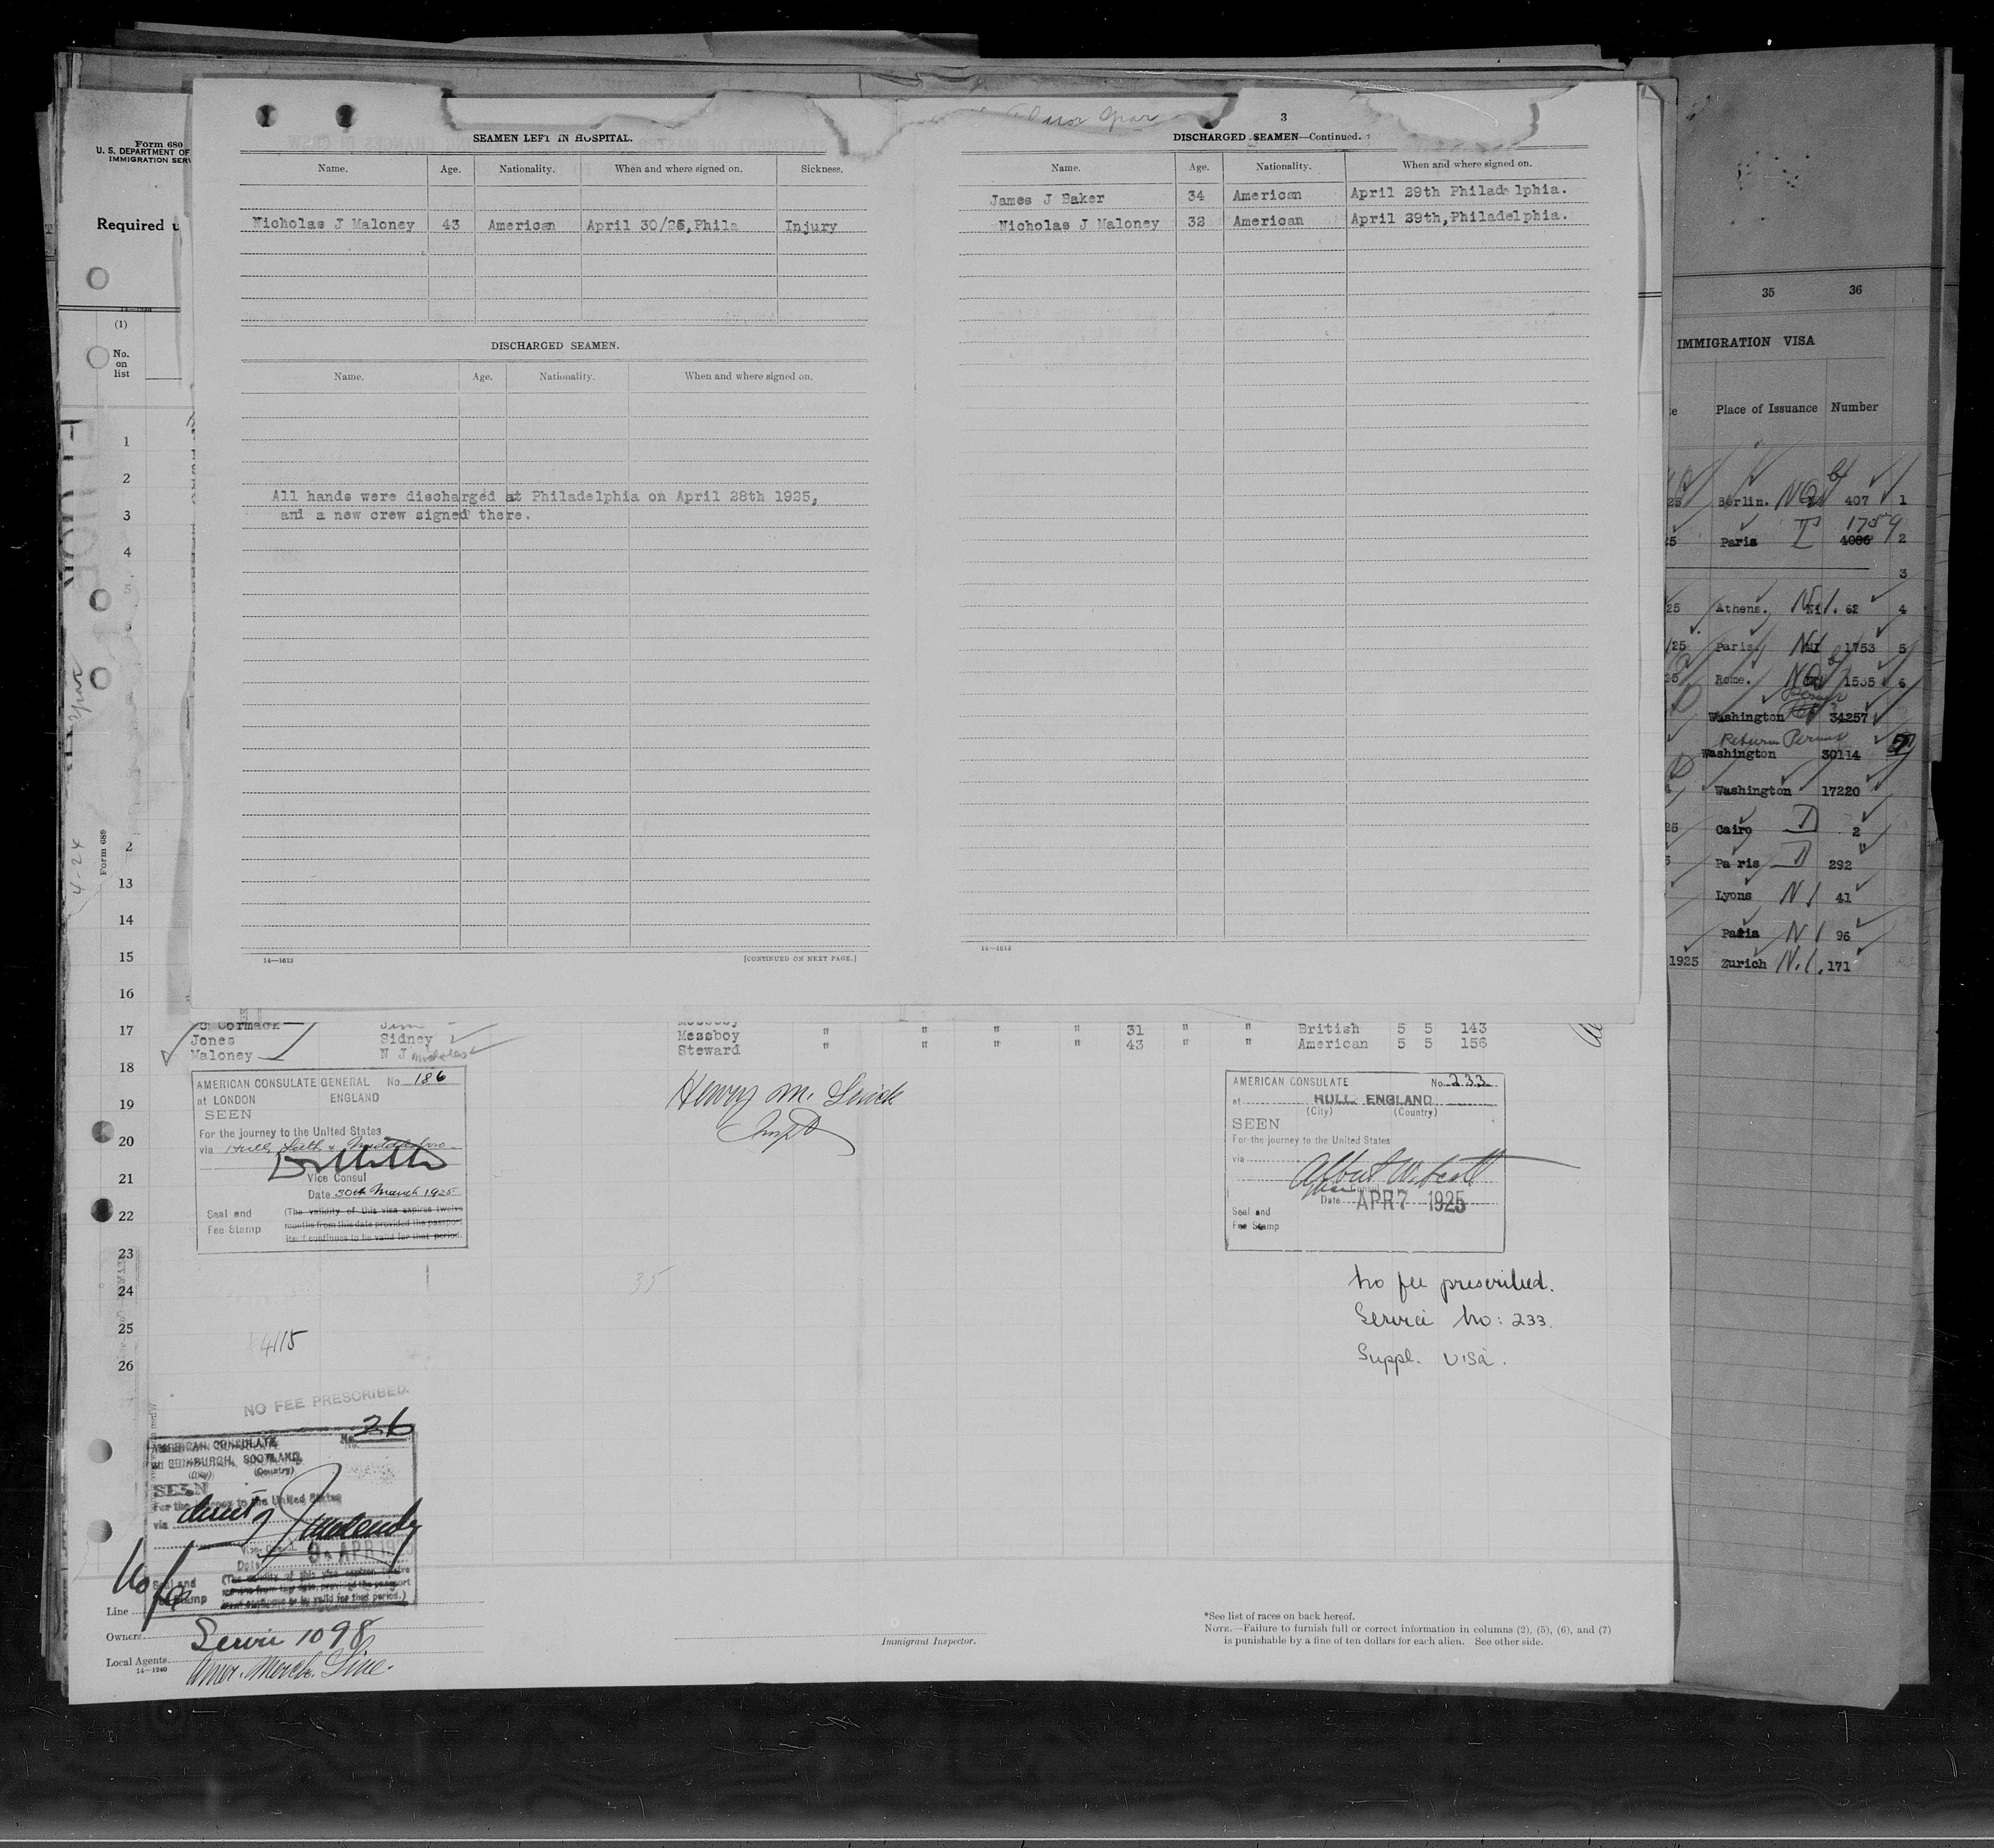 Form 680
U. S. DEPARTMENT OF
IMMIGRATION SERV
Required u
(1)
No.
on
list
SEAMEN LEFT IN HOSPITAL.
Name. Age. Nationality. When and where signed on. Sickness.
Nicholas J Maloney 43 American April 30/25, Phila Injury
DISCHARGED SEAMEN.
Name. Age. Nationality. When and where signed on.
All hands were discharged at Philadelphia on April 28th 1925,
and a new crew signed there.
14—1613 [CONTINUED ON NEXT PAGE.]
3
DISCHARGED SEAMEN—Continued.
Name. Age. Nationality. When and where signed on.
James J Baker 34 American April 29th Philadelphia.
Nicholas J Maloney 32 American April 29th, Philadelphia.
14—1613
35 36
IMMIGRATION VISA
Place of Issuance Number
25 Berlin. NQ 407 1
25 Paris 4086 1759 2
3
25 Athens. N1. 62 4
/25 Paris. N1 1753 5
25 Rome. NQ 1535 6
Washington 34257
Return Permit
Washington 30114
Washington 17220
25 Cairo 2
Paris 292
Lyons N 1 41
Paris N 1 96
1925 Zurich N.1. 171
1
2
3
4
Form 689
4-24
2
13
14
15
16
17
18
19
20
21
22
23
24
25
26
Cormack Jim
Jones Sidney Messboy " " " " 31 " " British 5 5 143
Maloney N J Nicholas Steward " " " " 43 " " American 5 5 156
AMERICAN CONSULATE GENERAL No 186
at LONDON ENGLAND
SEEN
For the journey to the United States
via Hull, Leith & Middlesbro
Vice Consul
Date 30th March 1925
Seal and (The validity of this visa expires twelve
Fee Stamp months from this date provided the passport
itself continues to be valid for that period.
Henry M.
AMERICAN CONSULATE No. 233
at HULL ENGLAND
(City) (Country)
SEEN
For the journey to the United States
via
Albert W. Scott
Vice Consul
Date APR 7 1925
Seal and
Fee Stamp
No fee prescribed.
Service No: 233.
Suppl. visa.
35
4115
NO FEE PRESCRIBED.
AMERICAN CONSULATE No. 26
at EDINBURGH, SCOTLAND,
(City) (Country)
SEEN
For the journey to the United States
via
Vice Consul
Date 9. APR 1925
No fee
Seal and (The validity of this visa expires twelve
Fee Stamp months from this date, provided the passport
itself continues to be valid for that period.)
Line
Owners Service 1098
Local Agents Amer. Merch. Line.
14—1240
Immigrant Inspector.
*See list of races on back hereof.
NOTE.—Failure to furnish full or correct information in columns (2), (5), (6), and (7)
is punishable by a fine of ten dollars for each alien. See other side.